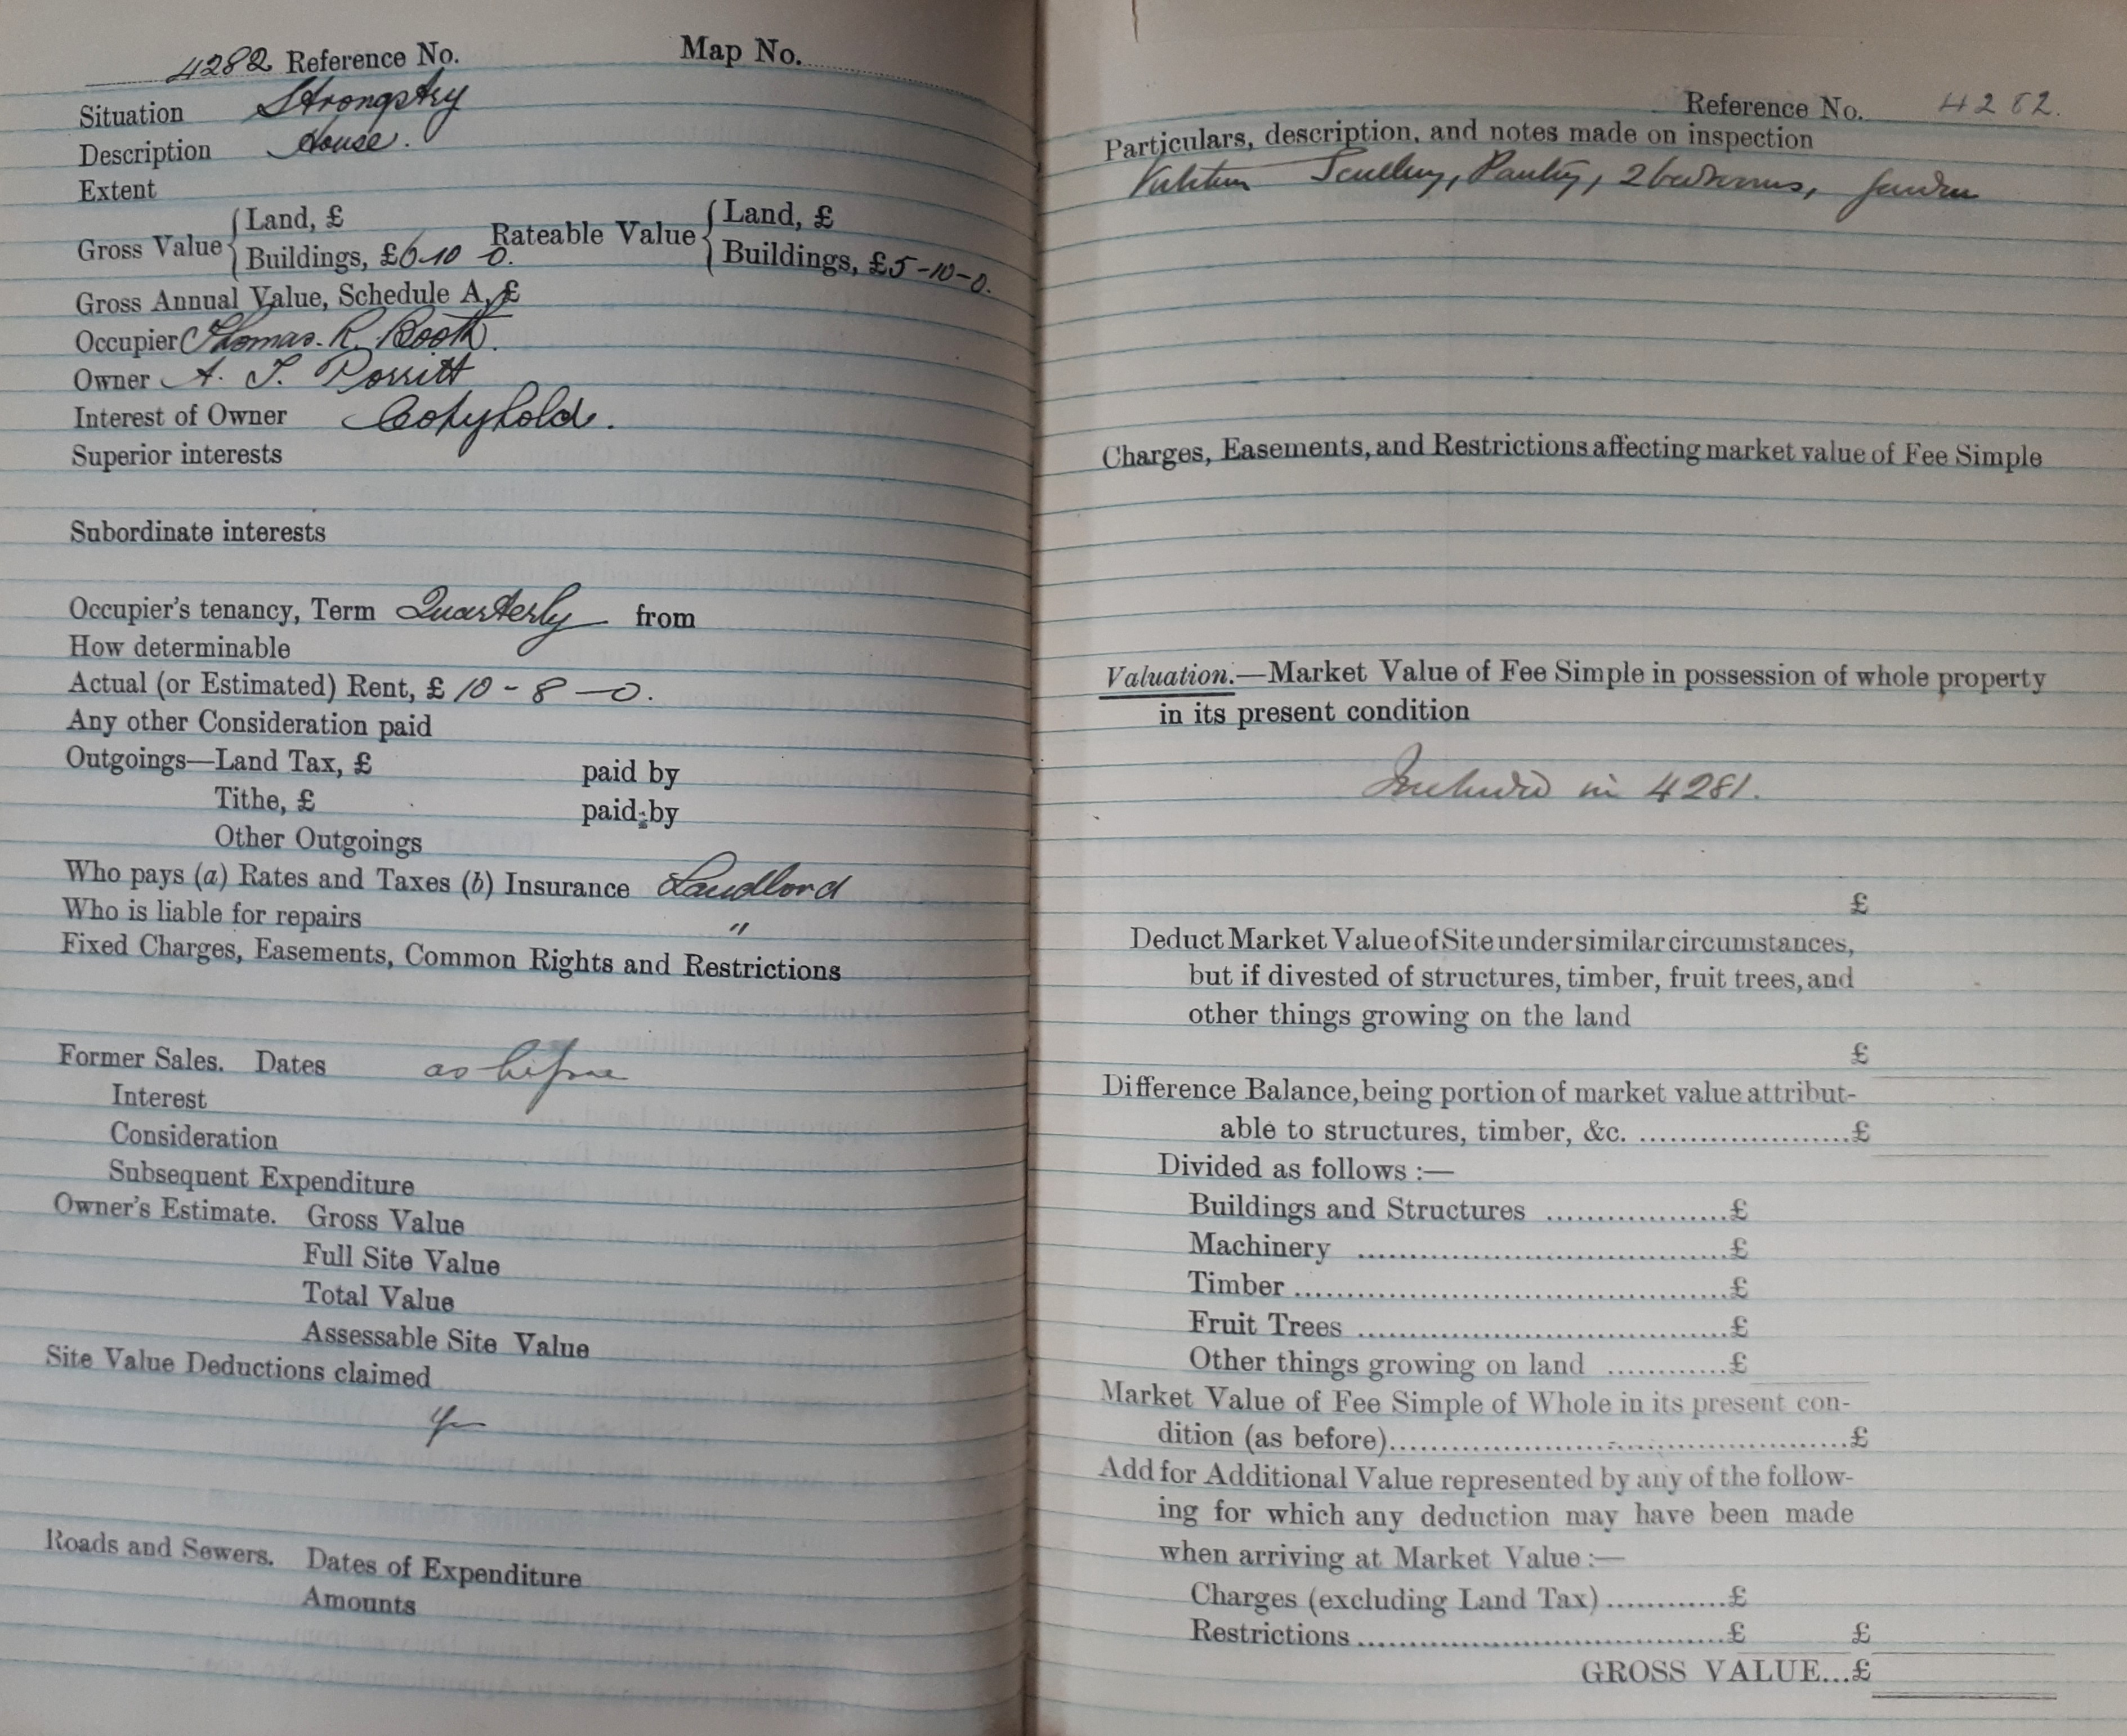 4282 Reference No. Map No.
Situation Strongstry
Description House.
Extent
Gross Value { Land, £
Buildings, £6-10 0. Rateable Value { Land, £
Buildings, £5-10-0.
Gross Annual Value, Schedule A, £
Occupier Thomas. R. Booth.
Owner A. T. Porritt
Interest of Owner Copyhold.
Superior interests
Subordinate interests
Occupier's tenancy, Term Quarterly from
How determinable
Actual (or Estimated) Rent, £ 10 - 8 - 0.
Any other Consideration paid
Outgoings—Land Tax, £ paid by
Tithe, £ paid by
Other Outgoings
Who pays (a) Rates and Taxes (b) Insurance Landlord
Who is liable for repairs "
Fixed Charges, Easements, Common Rights and Restrictions
Former Sales. Dates as before
Interest
Consideration
Subsequent Expenditure
Owner's Estimate. Gross Value
Full Site Value
Total Value
Assessable Site Value
Site Value Deductions claimed
Roads and Sewers. Dates of Expenditure
Amounts
Reference No. 4282.
Particulars, description, and notes made on inspection
Kitchen Scullery, Pantry, 2 bedrooms, garden
Charges, Easements, and Restrictions affecting market value of Fee Simple
Valuation.—Market Value of Fee Simple in possession of whole property
in its present condition
Included in 4281.
£
Deduct Market Value of Site under similar circumstances,
but if divested of structures, timber, fruit trees, and
other things growing on the land
£
Difference Balance, being portion of market value attribut-
able to structures, timber, &c. ......................£
Divided as follows :—
Buildings and Structures ...................£
Machinery .......................................£
Timber..............................................£
Fruit Trees .......................................£
Other things growing on land ............£
Market Value of Fee Simple of Whole in its present con-
dition (as before)..............................................£
Add for Additional Value represented by any of the follow-
ing for which any deduction may have been made
when arriving at Market Value :—
Charges (excluding Land Tax)............£
Restrictions.......................................£ £
GROSS VALUE...£